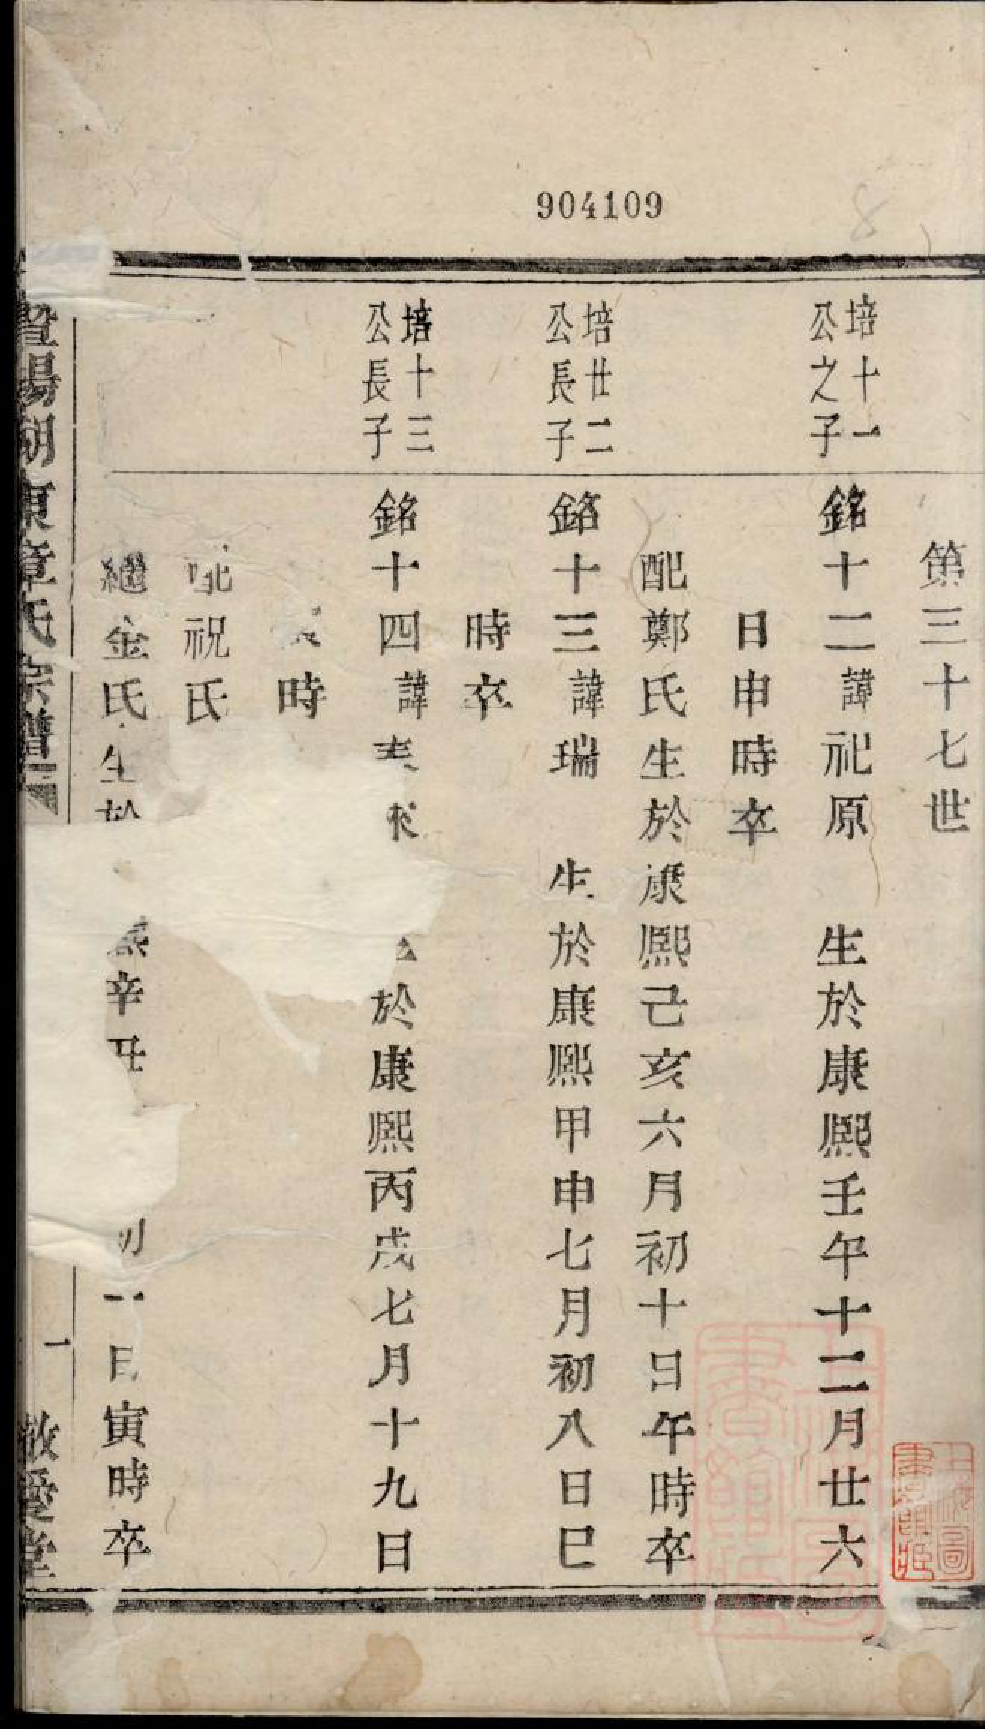 904109
第三十七世
培十一
公之子
銘十二諱祀原 生於康熙壬午十二月廿六
日申時卒
配鄭氏生於康熙己亥六月初十日午時卒
培廿二
公長子
銘十三諱瑞 生於康熙甲申七月初八日巳
時卒
培十三
公長子
銘十四諱 於康熙丙戌七月十九日
時
配祝氏
繼金氏生於 熙辛丑 初一日寅時卒
暨陽湖東章氏宗譜
一
敬愛堂
上海圖
書館藏